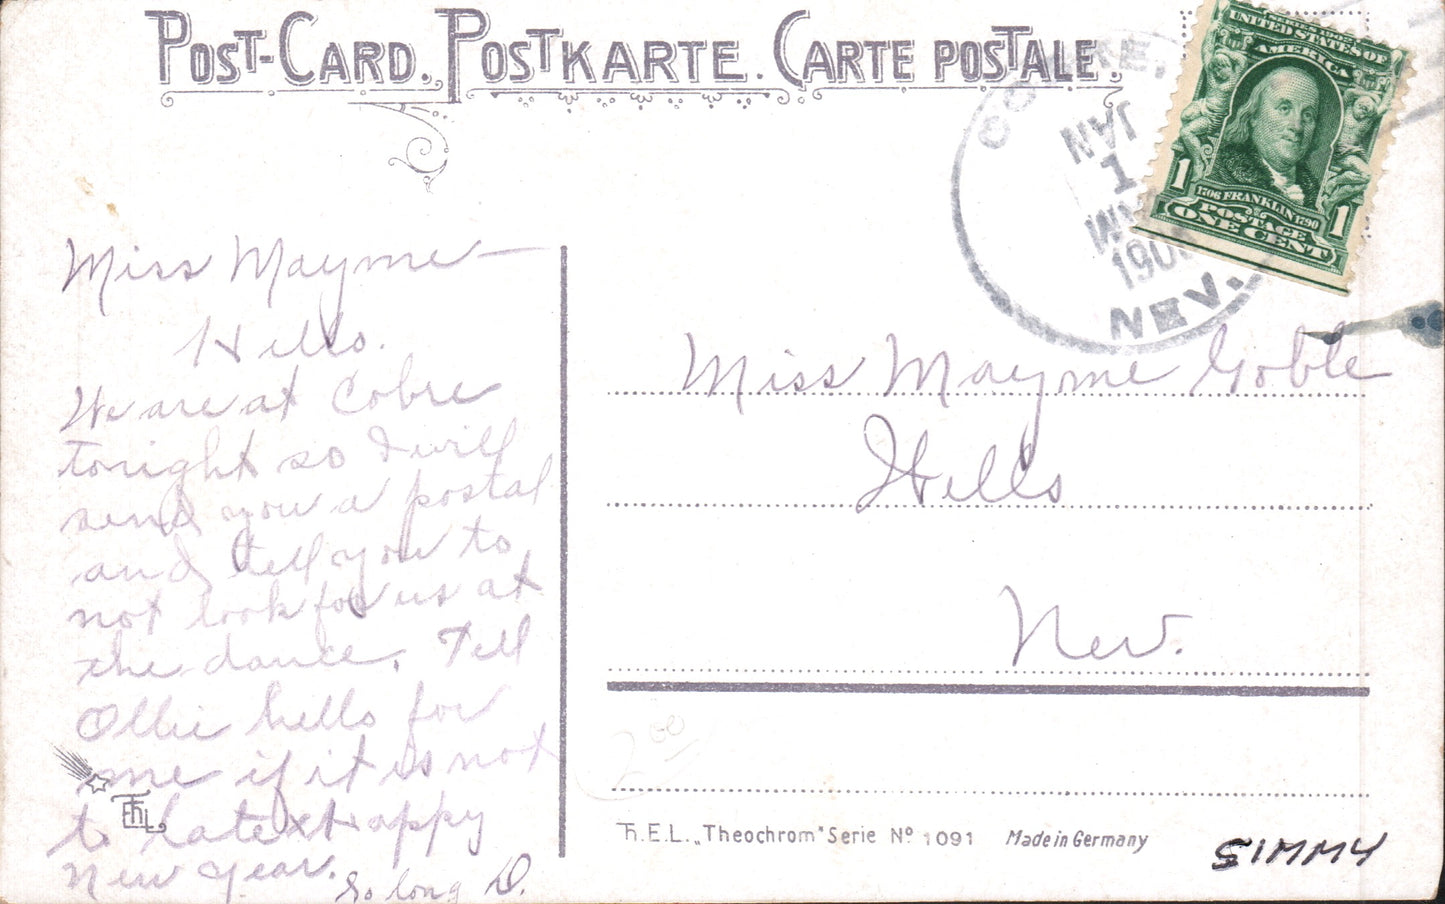 POST-CARD. POSTKARTE. CARTE POSTALE.
SERIES 1902
UNITED STATES OF
AMERICA
1706 FRANKLIN 1790
POSTAGE
ONE CENT
1 1
JAN
1
190
NEV.
Miss Mayme—
Hello.
We are at Cobre
tonight so I will
send you a postal
and tell you to
not look for us at
the dance. Tell
Ollie hello for
me if it is not
to late x Happy
New Year.
So long D.
Miss Mayme Goble
Wells
Nev.
2.00
EThL
Th.E.L. „Theochrom" Serie Nº 1091 Made in Germany
SIMMY